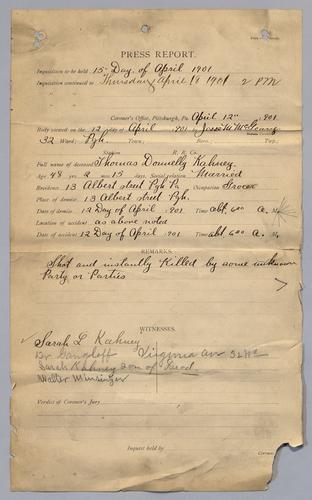 PRESS REPORT.
Inquisition to be held 15 Day of April 1901
Inquisition continued to Thursday April 18 1901 2 PM
Coroner's Office, Pittsburgh, Pa. April 12th 1901
Body viewed on the 12 day of April 1901 by Jesse M McGeary
32 Ward; Pgh. Town; Boro. Twp.
Station R. R. Co.
Full name of deceased Thomas Donnelly Kahney.
Age 48 yrs 2 mos 15 days. Social relation Married
Residence 13 Albert street Pgh Pa Occupation Grocer
Place of demise 13 Albert street Pgh.
Date of demise 12 Day of April 1901 Time abt 6 00 a. M.
Location of accident as above noted
Date of accident 12 Day of April 1901 Time abt 6 00 a. M.
REMARKS.
Shot and instantly Killed by some unknown
Party or Parties
WITNESSES.
Sarah L Kahney
Dr Dangloff Virginia av
Sarah Kahney son of Deced.
Walter
Verdict of Coroner's Jury
Inquest held by Coroner